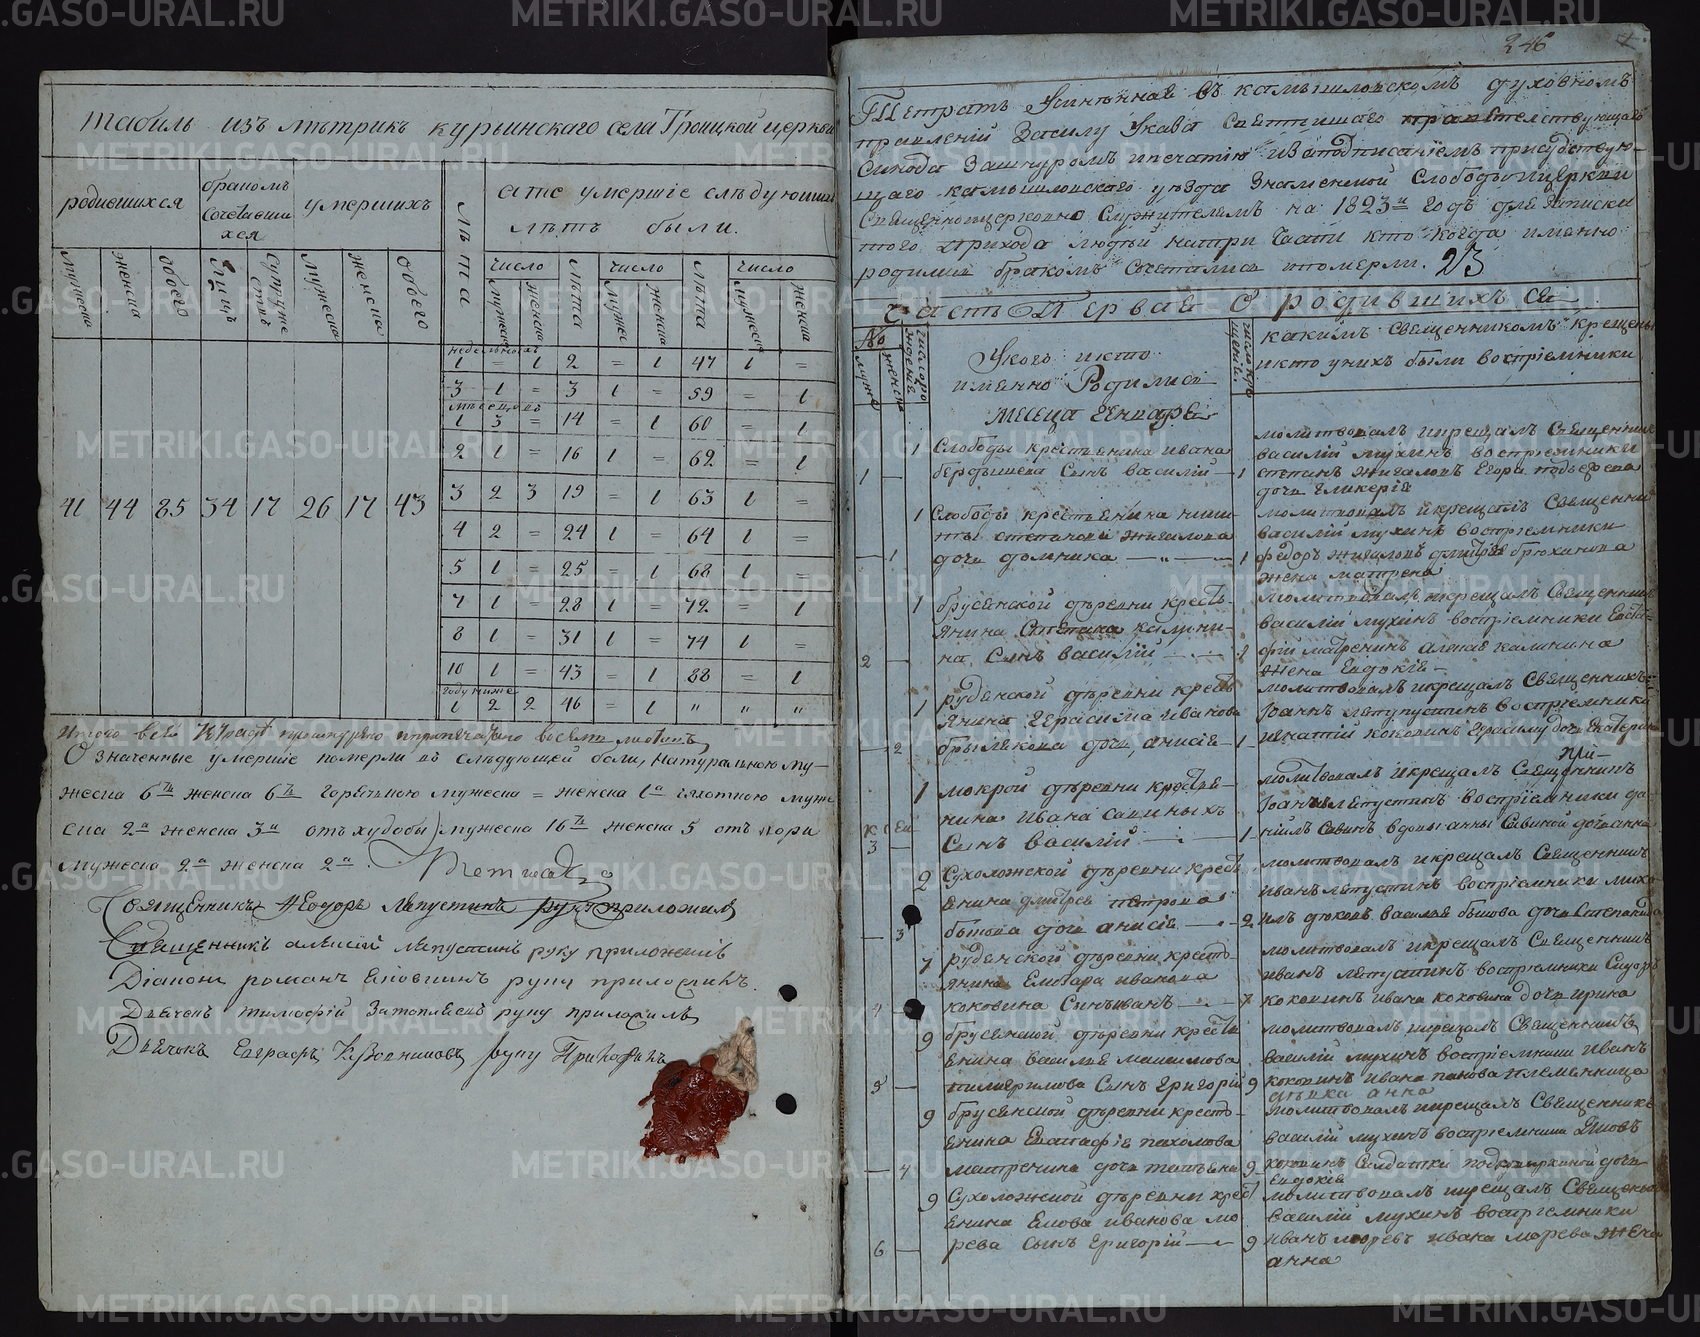 табиль изъ мѣтрикъ курьинскаго села Троицкой церкви
родившихся
бракомъ сочетавши хся
умершихъ
лѣта
а те умершiе слѣдующихъ
лѣтъ были.
мужеска женска обоего лицъ супружествъ мужеска женска обоего
число лѣта число лѣта число
мужеска женска мужес женска мужеска женска
недельныхъ
1 = 1 2 = 1 47 1 =
3 1 = 3 1 = 59 = 1
мѣсецовъ
1 3 = 14 = 1 60 = 1
2 1 = 16 1 = 62 = 1
3 2 3 19 = 1 63 1 =
41 44 85 34 17 26 17 43
4 2 = 24 1 = 64 1 =
5 1 = 25 = 1 68 1 =
7 1 = 28 1 = 72 = 1
8 1 = 31 1 = 74 1 =
10 1 = 43 = 1 88 = 1
году ниже
1 2 2 46 = 1 " " "
О значенные умершiе померли въ слѣдующей боли, натуральною му-
жеска 6ть женска 6ть горячкою мужеска = женска 1а чахотною муже
ска 2а женска 3а отъ худобы мужеска 16ть женска 5 отъ кори
мужеска 2а женска 2а.
Священникъ Ѳеодоръ Лапустинъ руку приложилъ
Священникъ алексiй Лапустинъ руку приложилъ
Дiаконъ романъ руку приложилъ.
Дьячекъ тимофiй руку приложилъ
Дьячокъ Евграфъ руку Приложилъ
246
Тетрать Учинѣнная въ камышловскомъ духовномъ
правленiй Всилу Указа Святѣйшаго правителствующаго
Синода Зашнуромъ ипечатiю иЗаподписанiемъ присудствую-
щаго камышловскаго уезда Знаменской Слободы церкви
Священноицерковно Служителемъ на 1823й годъ для Записки
того прихода людѣй натри Части кто когда именно
родились бракомъ сочетались ипомерли. 23
Часть Первая О родившихъ ся
№
мужес женск
число рожденiе
Укого икто
именно Родились
число крещенiй
какимъ священникомъ крещены
икто унихъ были восприемники
месеца Генваря
1 Слободы крестьянина ивана
1 — бердышева Сынъ василiй — 1
молитвовалъ икрещалъ Священникъ
василiй мухинъ восприемники
степанъ жигаловъ Егора
дочь Гликерiя
1 Слободы крестьянина ники-
ты степанова жигалова
— 1 дочь домника — " — 1
молитвовалъ икрещалъ Священни
василiй мухинъ восприемники
федоръ жигаловъ дмитрiя брюханова
жена матрена
1 брусянской дѣревни кресть
янина Степана калини-
2 — на Сынъ василiй — 1
молитвовалъ икрещалъ Священникъ
василiй мухинъ восприемники Евста-
фiй матренинъ алексѣя калинина
жена Евдокiя —
1 рудянской дѣревни кресть
янина Герасима иванова
— 2 брылякова дочь анисiя — 1
молитвовалъ икрещалъ Священникъ
Iоаннъ лапустинъ восприемники
игнатiй коковинъ дочь Екатерина
1 мокрой дѣревни крестья-
нина ивана савиныхъ
3 — Сынъ василiй — 1
молитвовалъ икрещалъ Священникъ
Iоаннъ лапустинъ восприемники да-
нiилъ Савинъ вдовы анны Савиной дочь анна
2 Сухоложской дѣревни крестъ
янина дмитрея петрова
— 3 быкова дочь анисiя — 2
молитвовалъ икрещалъ Священникъ
иванъ лапустинъ восприемники миха-
илъ василья быкова дочь Степанида
7 рудянской дѣревни кресть-
янина Елизара иванова
4 — коковина Сынъ иванъ — 7
молитвовалъ икрещалъ Священникъ
иванъ лапустинъ восприемники Сидоръ
коковинъ ивана коковина дочь ирина
9 брусянской дѣревни кресть
янина василья максимова
5 — Сынъ григорiй 9
молитвовалъ икрещалъ Священникъ
василiй мухинъ восприемники иванъ
коковинъ ивана панова племянница
дѣвка анна
9 брусянской дѣревни кресть-
янина Евстафiя пахомова
— 4 матренина дочь татьяна 9
молитвовалъ икрещалъ Священникъ
василiй мухинъ восприемники Яковъ
Солдатки дочь
Евдокiя
9 Сухоложской дѣревни крест
янина Якова иванова мо
6 — рева Сынъ григорiй — 9
молитвовалъ икрещалъ Священникъ
василiй мухинъ восприемники
иванъ моревъ ивана морева жена
анна
METRIKI.GASO-URAL.RU